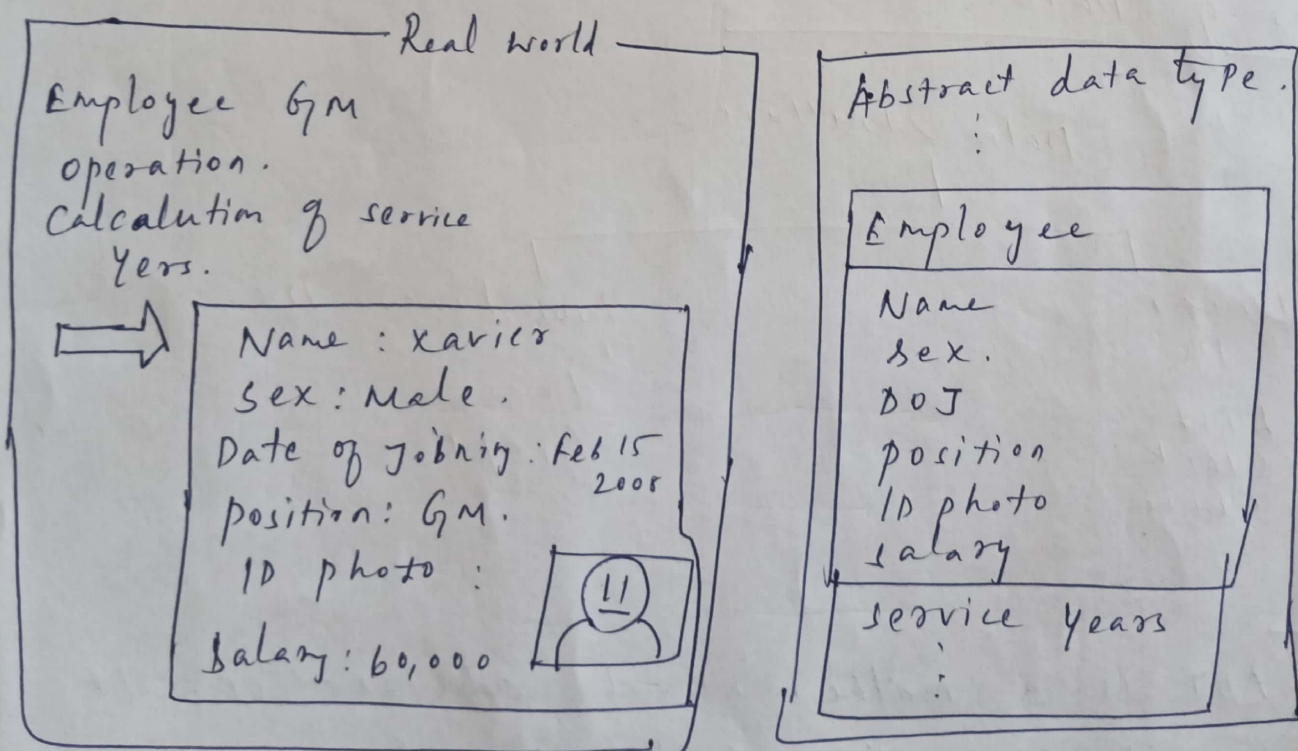 Real world
Employee GM
operation.
Calcalution of service
Yers.
Name : Xavier
Sex : Male.
Date of Jobning : Feb 15
2008
position : GM.
ID photo :
Salary : 60,000
Abstract data type.
Employee
Name
Sex.
DOJ
position
ID photo
salary
service years